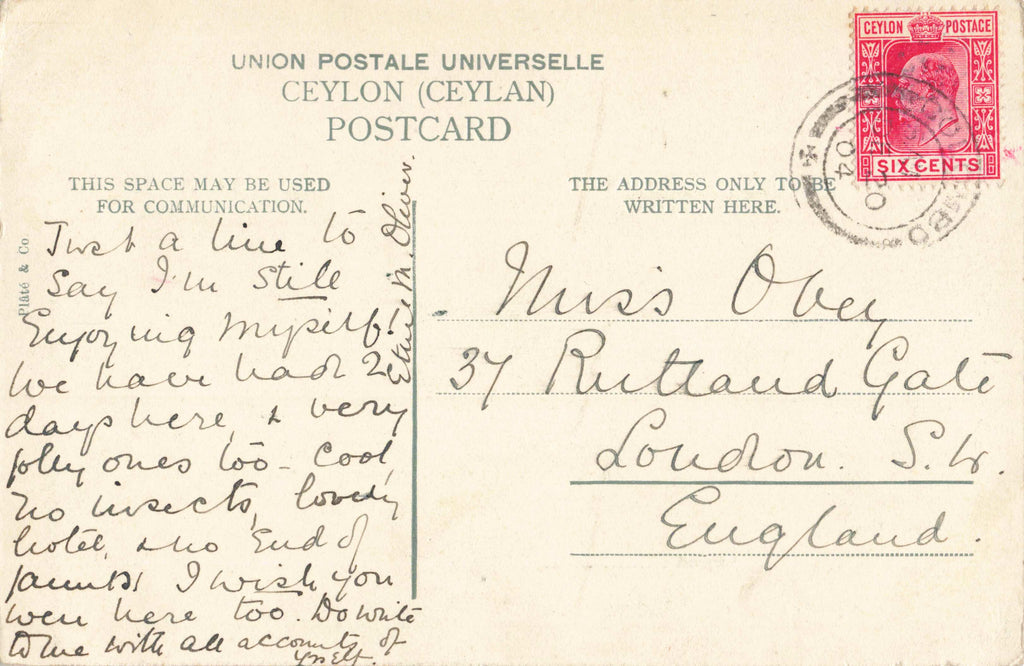 UNION POSTALE UNIVERSELLE
CEYLON (CEYLAN)
POSTCARD
CEYLON POSTAGE
SIX CENTS
04
THIS SPACE MAY BE USED
FOR COMMUNICATION.
THE ADDRESS ONLY TO BE
WRITTEN HERE.
Plâté & Co
Just a line to
say I'm still
Enjoying myself!
We have had 2
days here, & very
jolly ones too - cool,
no insects, lovely
hotel, & no End of
jaunts! I wish you
were here too. Do write
to me with all accounts of
yrself.
M. Oliver.
Miss Obey
37 Rutland Gate
London. S.W.
England.